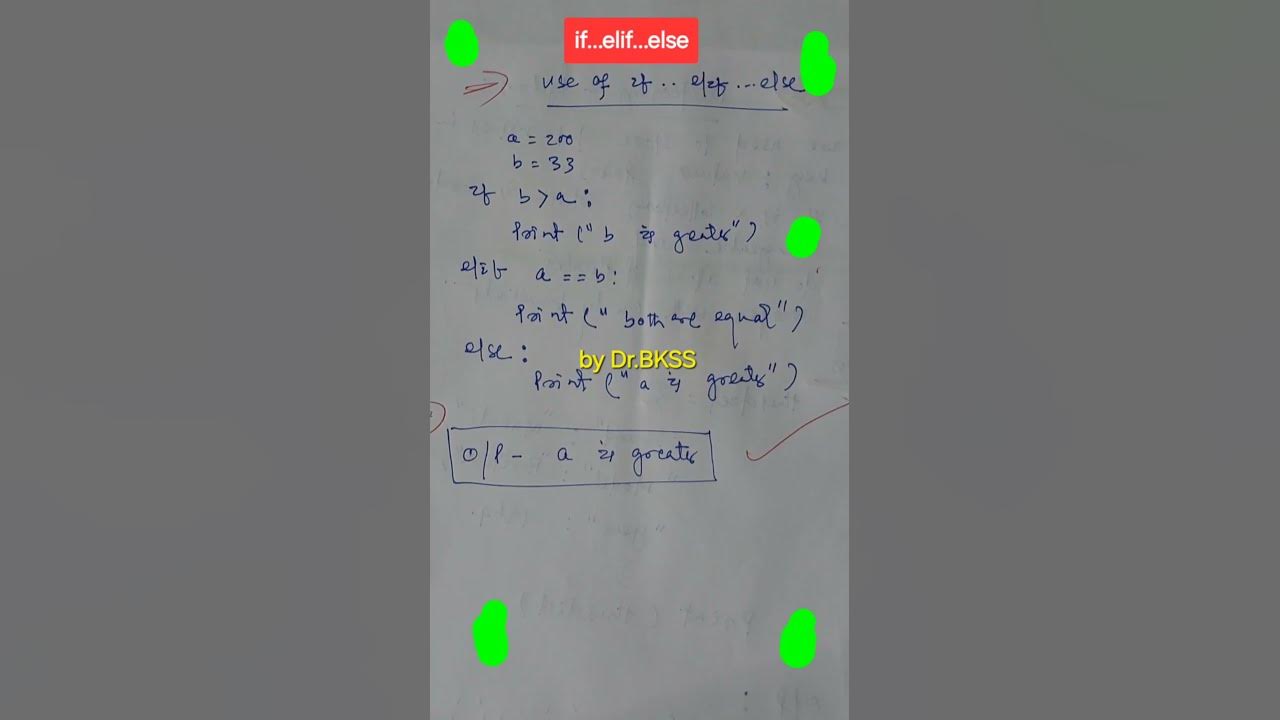 if...elif...else
use of if .. elif ... else
a = 200
b = 33
if b > a:
Print (" b is greater")
elif a == b:
Print (" both are equal")
else:
by Dr.BKSS
Print (" a is greater")
O/P - a is greater